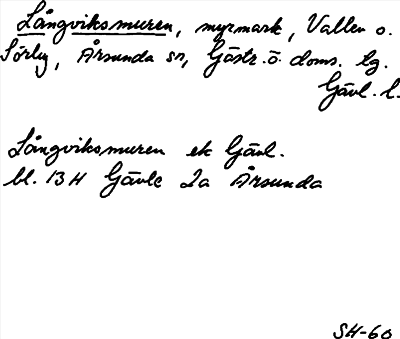 Långviksmuren, myrmark, Vallen o.
Sörby, Årsunda sn, Gästr.ö. doms. lg.
Gävl. l.
Långviksmuren ek Gävl.
bl. 13 H Gävle 2a Årsunda
SH-60